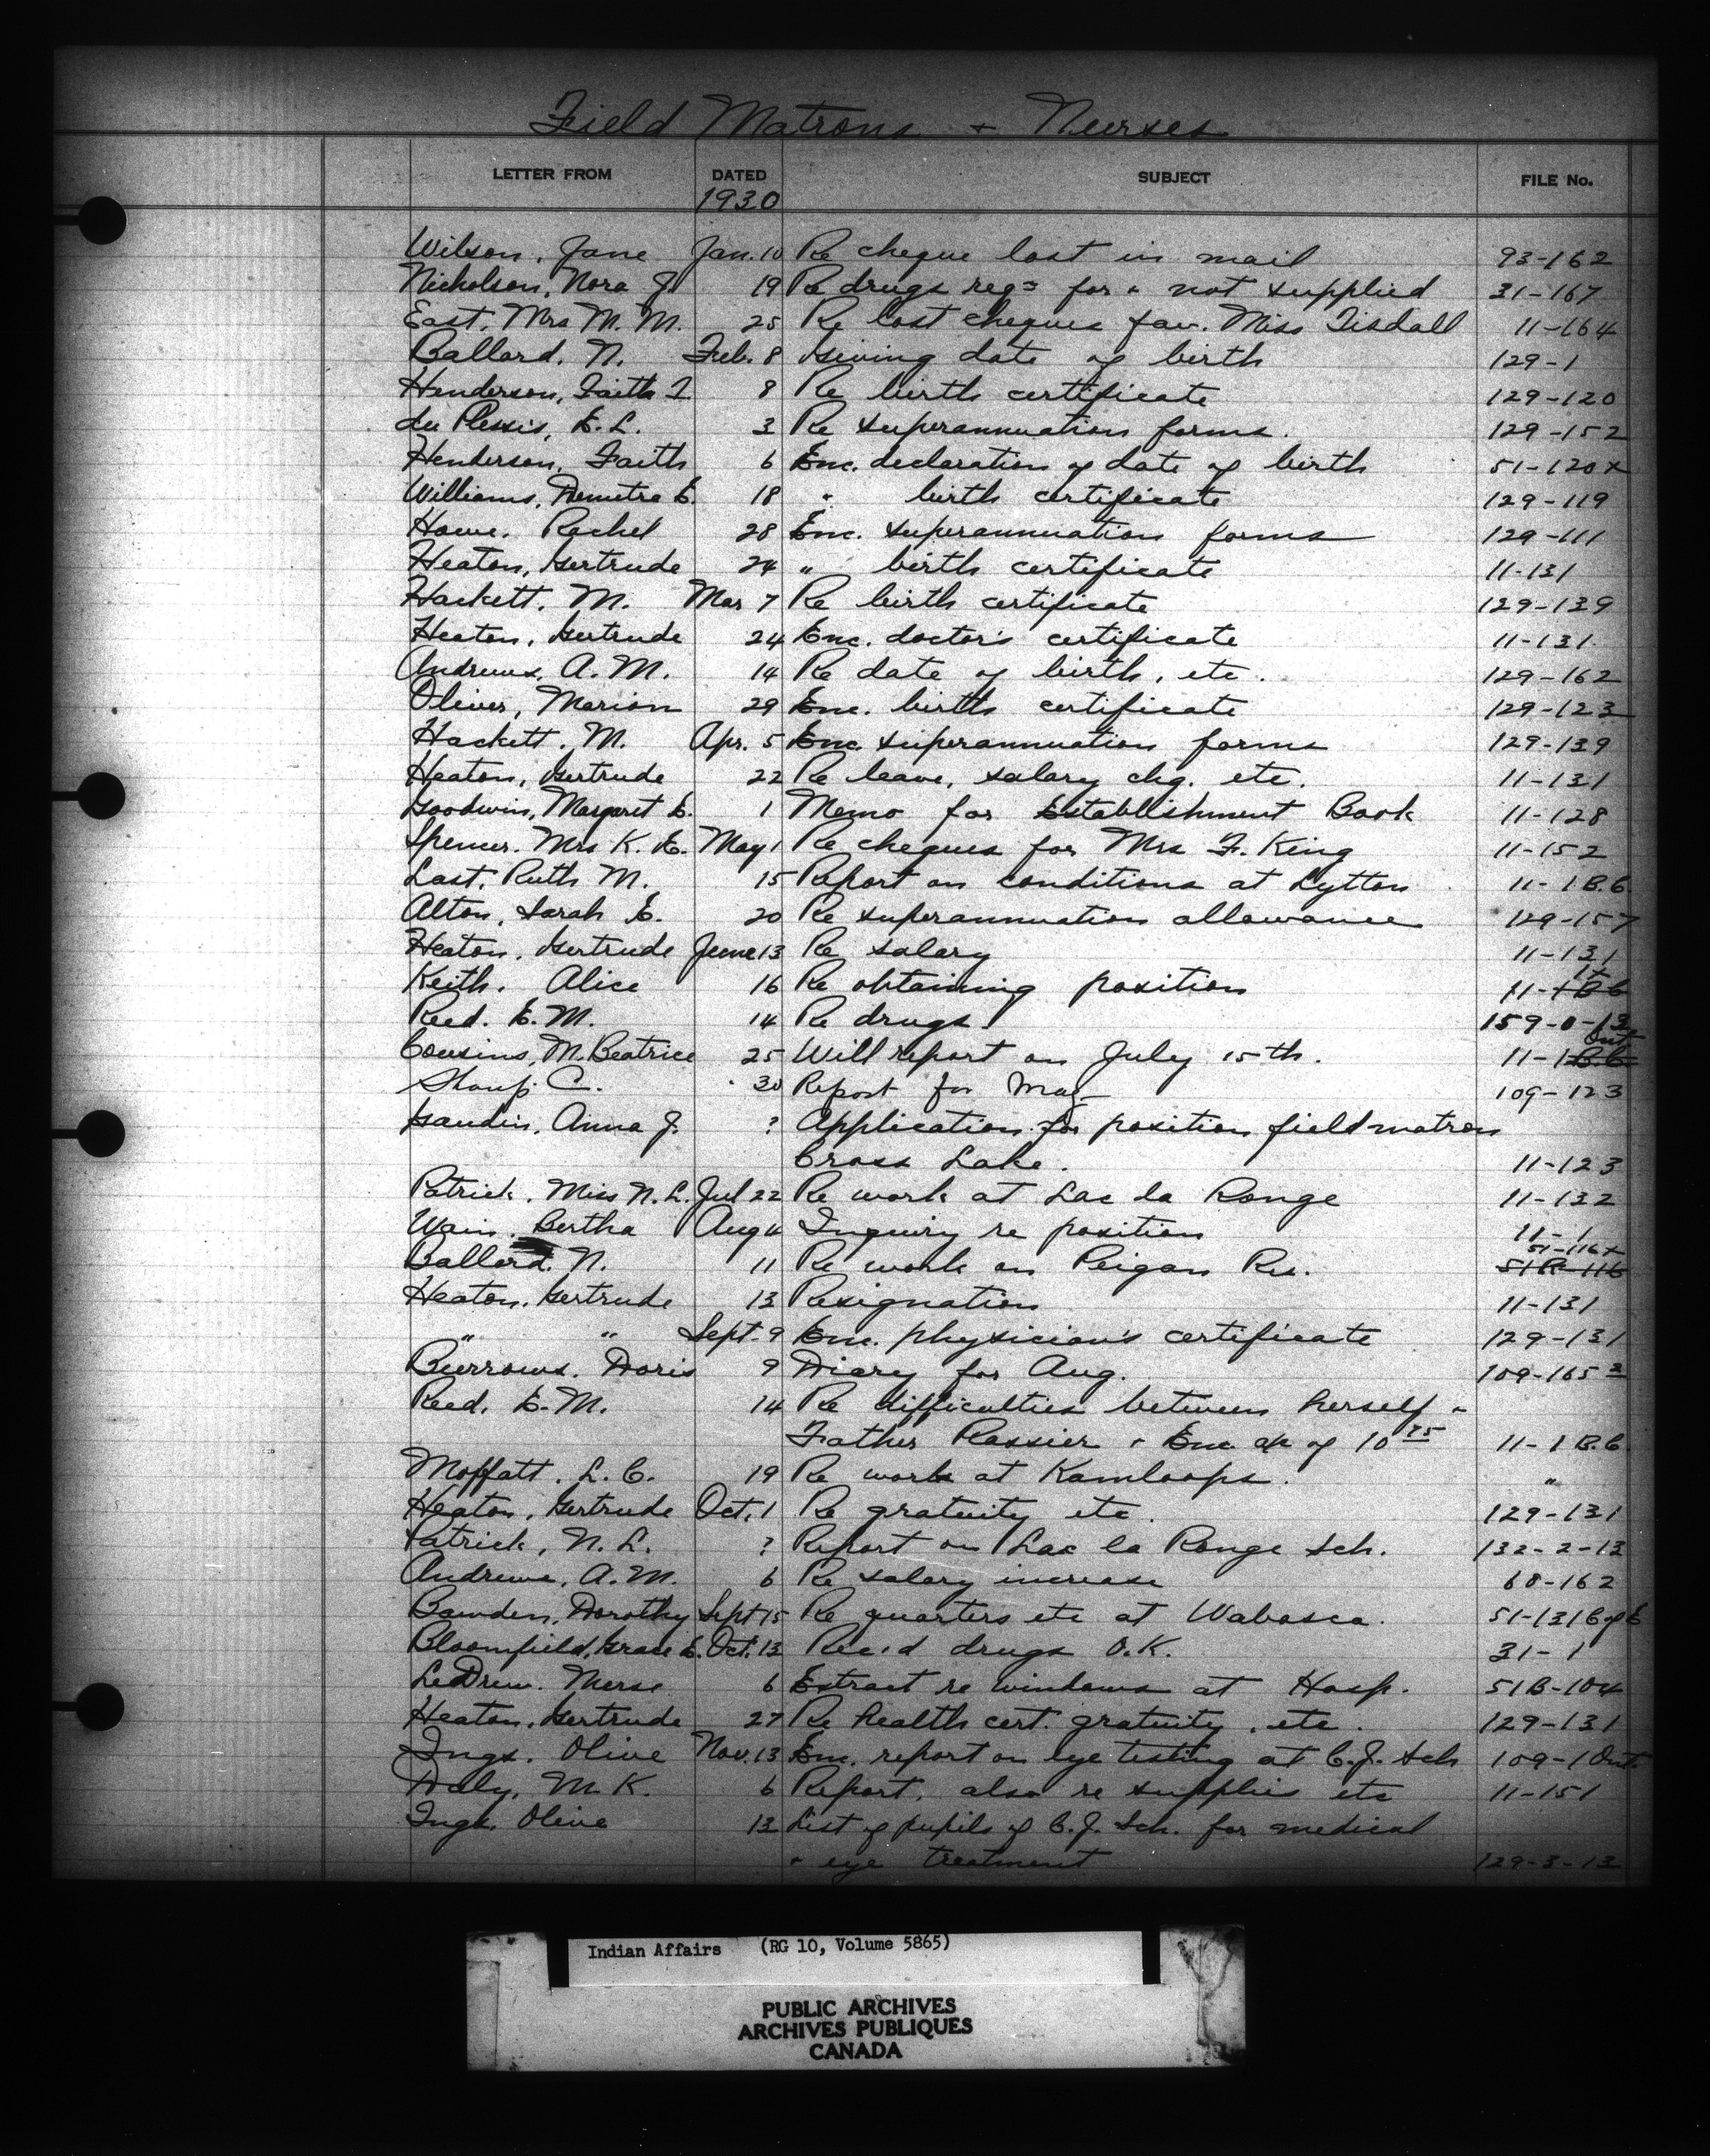 Field Matrons + Nurses
LETTER FROM DATED SUBJECT FILE No.
1930
Wilson, Jane Jan. 10 Re cheque lost in mail 93-162
Nicholson, Nora J. 19 Re drugs reqd for + not supplied 31-167
East, Mrs M. M. 25 Re lost cheques fav. Miss Tisdall 11-164
Ballard, N. Feb. 8 Giving date of birth 129-1
Henderson, Faith I 8 Re birth certificate 129-120
du Plessis, E. L. 3 Re superannuation forms. 129-152
Henderson, Faith 6 Enc. declaration of date of birth 51-120x
Williams, Demetra E. 18 " birth certificate 129-119
Howe, Rachel 28 Enc. superannuation forms 129-111
Heaton, Gertrude 24 " birth certificate 11-131
Hackett, M. Mar 7 Re birth certificate 129-139
Heaton, Gertrude 24 Enc. doctor's certificate 11-131
Andrews, A. M. 14 Re date of birth, etc. 129-162
Oliver, Marion 29 Enc. birth certificate 129-123
Hackett, M. Apr. 5 Enc. superannuation forms 129-139
Heaton, Gertrude 22 Re leave, salary chq. etc. 11-131
Goodwin, Margaret E. 1 Memo for Establishment Book 11-128
Spencer, Mrs K. E. May 1 Re cheques for Mrs F. King 11-152
Last, Ruth M. 15 Report on conditions at Lytton 11-1 B.C.
Alton, Sarah E. 20 Re superannuation allowance 129-157
Heaton, Gertrude June 13 Re salary 11-131
Keith, Alice 16 Re obtaining position 11-1 BC
Reed, E. M. 14 Re drugs 159-0-13
Cousins, M. Beatrice 25 Will report on July 15th. 11-1 B.C. Ont
Sharp, C. 30 Report for May 109-123
Gaudin, Anna J. ? Application for position field matron
Cross Lake. 11-123
Patrick, Miss N. L. Jul 22 Re work at Lac la Ronge 11-132
Wain, Bertha Aug 4 Inquiry re position 11-1
51-116x
Ballard, N. 11 Re work on Peigan Res. 51R-116
Heaton, Gertrude 13 Resignation 11-131
" " Sept. 9 Enc. physician's certificate 129-131
Burrows, Doris 9 Diary for Aug. 109-165 2
Reed, E. M. 14 Re difficulties between herself +
Father Rassier + Enc a/c of 10 75 11-1 B.C.
Moffatt, L. C. 19 Re work at Kamloops. "
Heaton, Gertrude Oct. 1 Re gratuity etc. 129-131
Patrick, N. L. ? Report on Lac la Ronge Sch. 132-2-13
Andrews, A. M. 6 Re salary increase 60-162
Bawden, Dorothy Sept 15 Re quarters etc at Wabasca. 51-131
Bloomfield, Grace E. Oct. 13 Rec'd drugs O.K. 31-1
LeDrew, Nurse 6 Extract re windows at Hosp. 51B-104
Heaton, Gertrude 27 Re health cert. gratuity, etc. 129-131
Ings, Olive Nov. 13 Enc. report on eye testing at C.J. Sch 109-1 Ont.
Daly, M. K. 6 Report, also re supplies etc 11-151
Ings, Olive 13 List of pupils of C.J. Sch. for medical
+ eye treatment 129-3-13
Indian Affairs (RG 10, Volume 5865)
PUBLIC ARCHIVES
ARCHIVES PUBLIQUES
CANADA